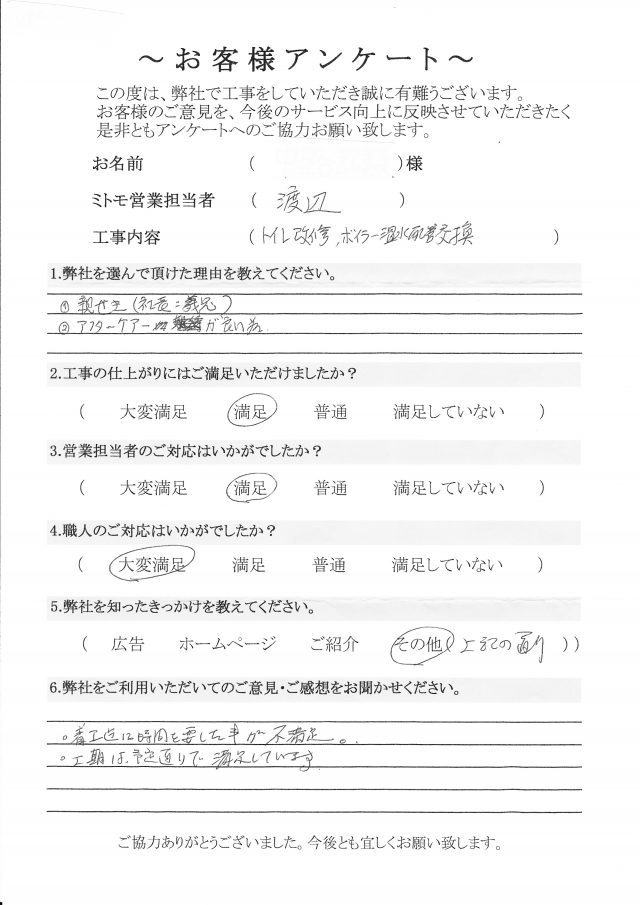 ～お客様アンケート～
この度は、弊社で工事をしていただき誠に有難うございます。
お客様のご意見を、今後のサービス向上に反映させていただきたく
是非ともアンケートへのご協力お願い致します。
お名前 ( )様
ミトモ営業担当者 ( 渡辺 )
工事内容 ( トイレ改修,ボイラー温水配管交換 )
1.弊社を選んで頂けた理由を教えてください。
① 親せき(社長:義兄)
② アフターケアーが良い為.
2.工事の仕上がりにはご満足いただけましたか？
( 大変満足 満足 普通 満足していない )
3.営業担当者のご対応はいかがでしたか？
( 大変満足 満足 普通 満足していない )
4.職人のご対応はいかがでしたか？
( 大変満足 満足 普通 満足していない )
5.弊社を知ったきっかけを教えてください。
( 広告 ホームページ ご紹介 その他( 上記の通り ))
6.弊社をご利用いただいてのご意見・ご感想をお聞かせください。
。着工迄に時間を要した事が不満足。
。工期は予定通りで満足しています
ご協力ありがとうございました。今後とも宜しくお願い致します。